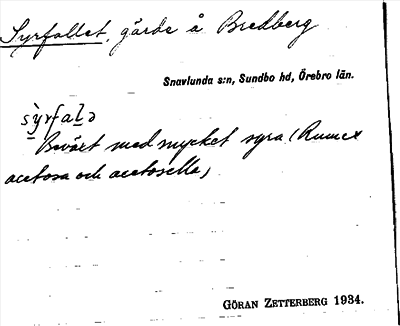 Syrfallet, gärde å Bredberg
Snavlunda s:n, Sundbo hd, Örebro län.
sỳ̠rfal̠ə
Beväxt med mycket syra (Rumex
acetosa och acetosella)
GÖRAN ZETTERBERG 1934.